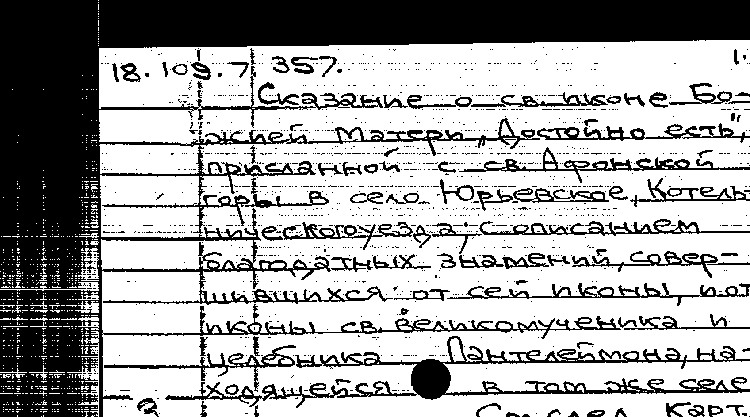 18.109.7 357. 1.
Сказание о св. иконе Бо-
жией Матери „Достойно есть",
присланной с св. Афонской
горы в село Юрьевское, Котель-
нического уезда; с описанием
благодатных знамений, совер-
шившихся от сей иконы, и от
иконы св. великомученика и
целебника Пантелеймона, на-
ходящейся в том же селе
3 См. след. карт.